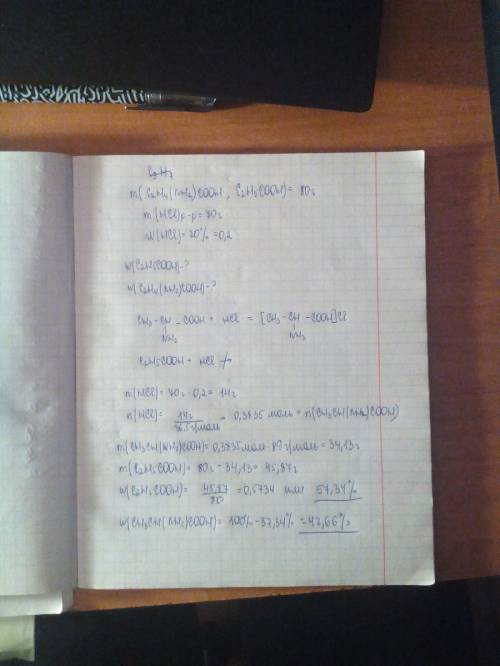 m(C₂H₄(NH₂)COOH, C₂H₅COOH) = 80г
m(HCl)р-р = 70г
w(HCl) = 20% = 0,2
w(C₂H₅COOH) - ?
w(C₂H₄(NH₂)COOH) - ?
CH₃ - CH - COOH + HCl = [CH₃ - CH - COOH]Cl
NH₂ NH₃
C₂H₅COOH + HCl ↛
m(HCl) = 70г · 0,2 = 14г
n(HCl) = 14г / 36,5г/моль = 0,3835 моль = n(CH₃CH(NH₂)COOH)
m(CH₃CH(NH₂)COOH) = 0,3835моль · 89 г/моль = 34,13г
m(C₂H₅COOH) = 80г - 34,13 = 45,87г
w(C₂H₅COOH) = 45,87 / 80 = 0,5734 или 57,34%
w(CH₃CH(NH₂)COOH) = 100% - 57,34% = 42,66%